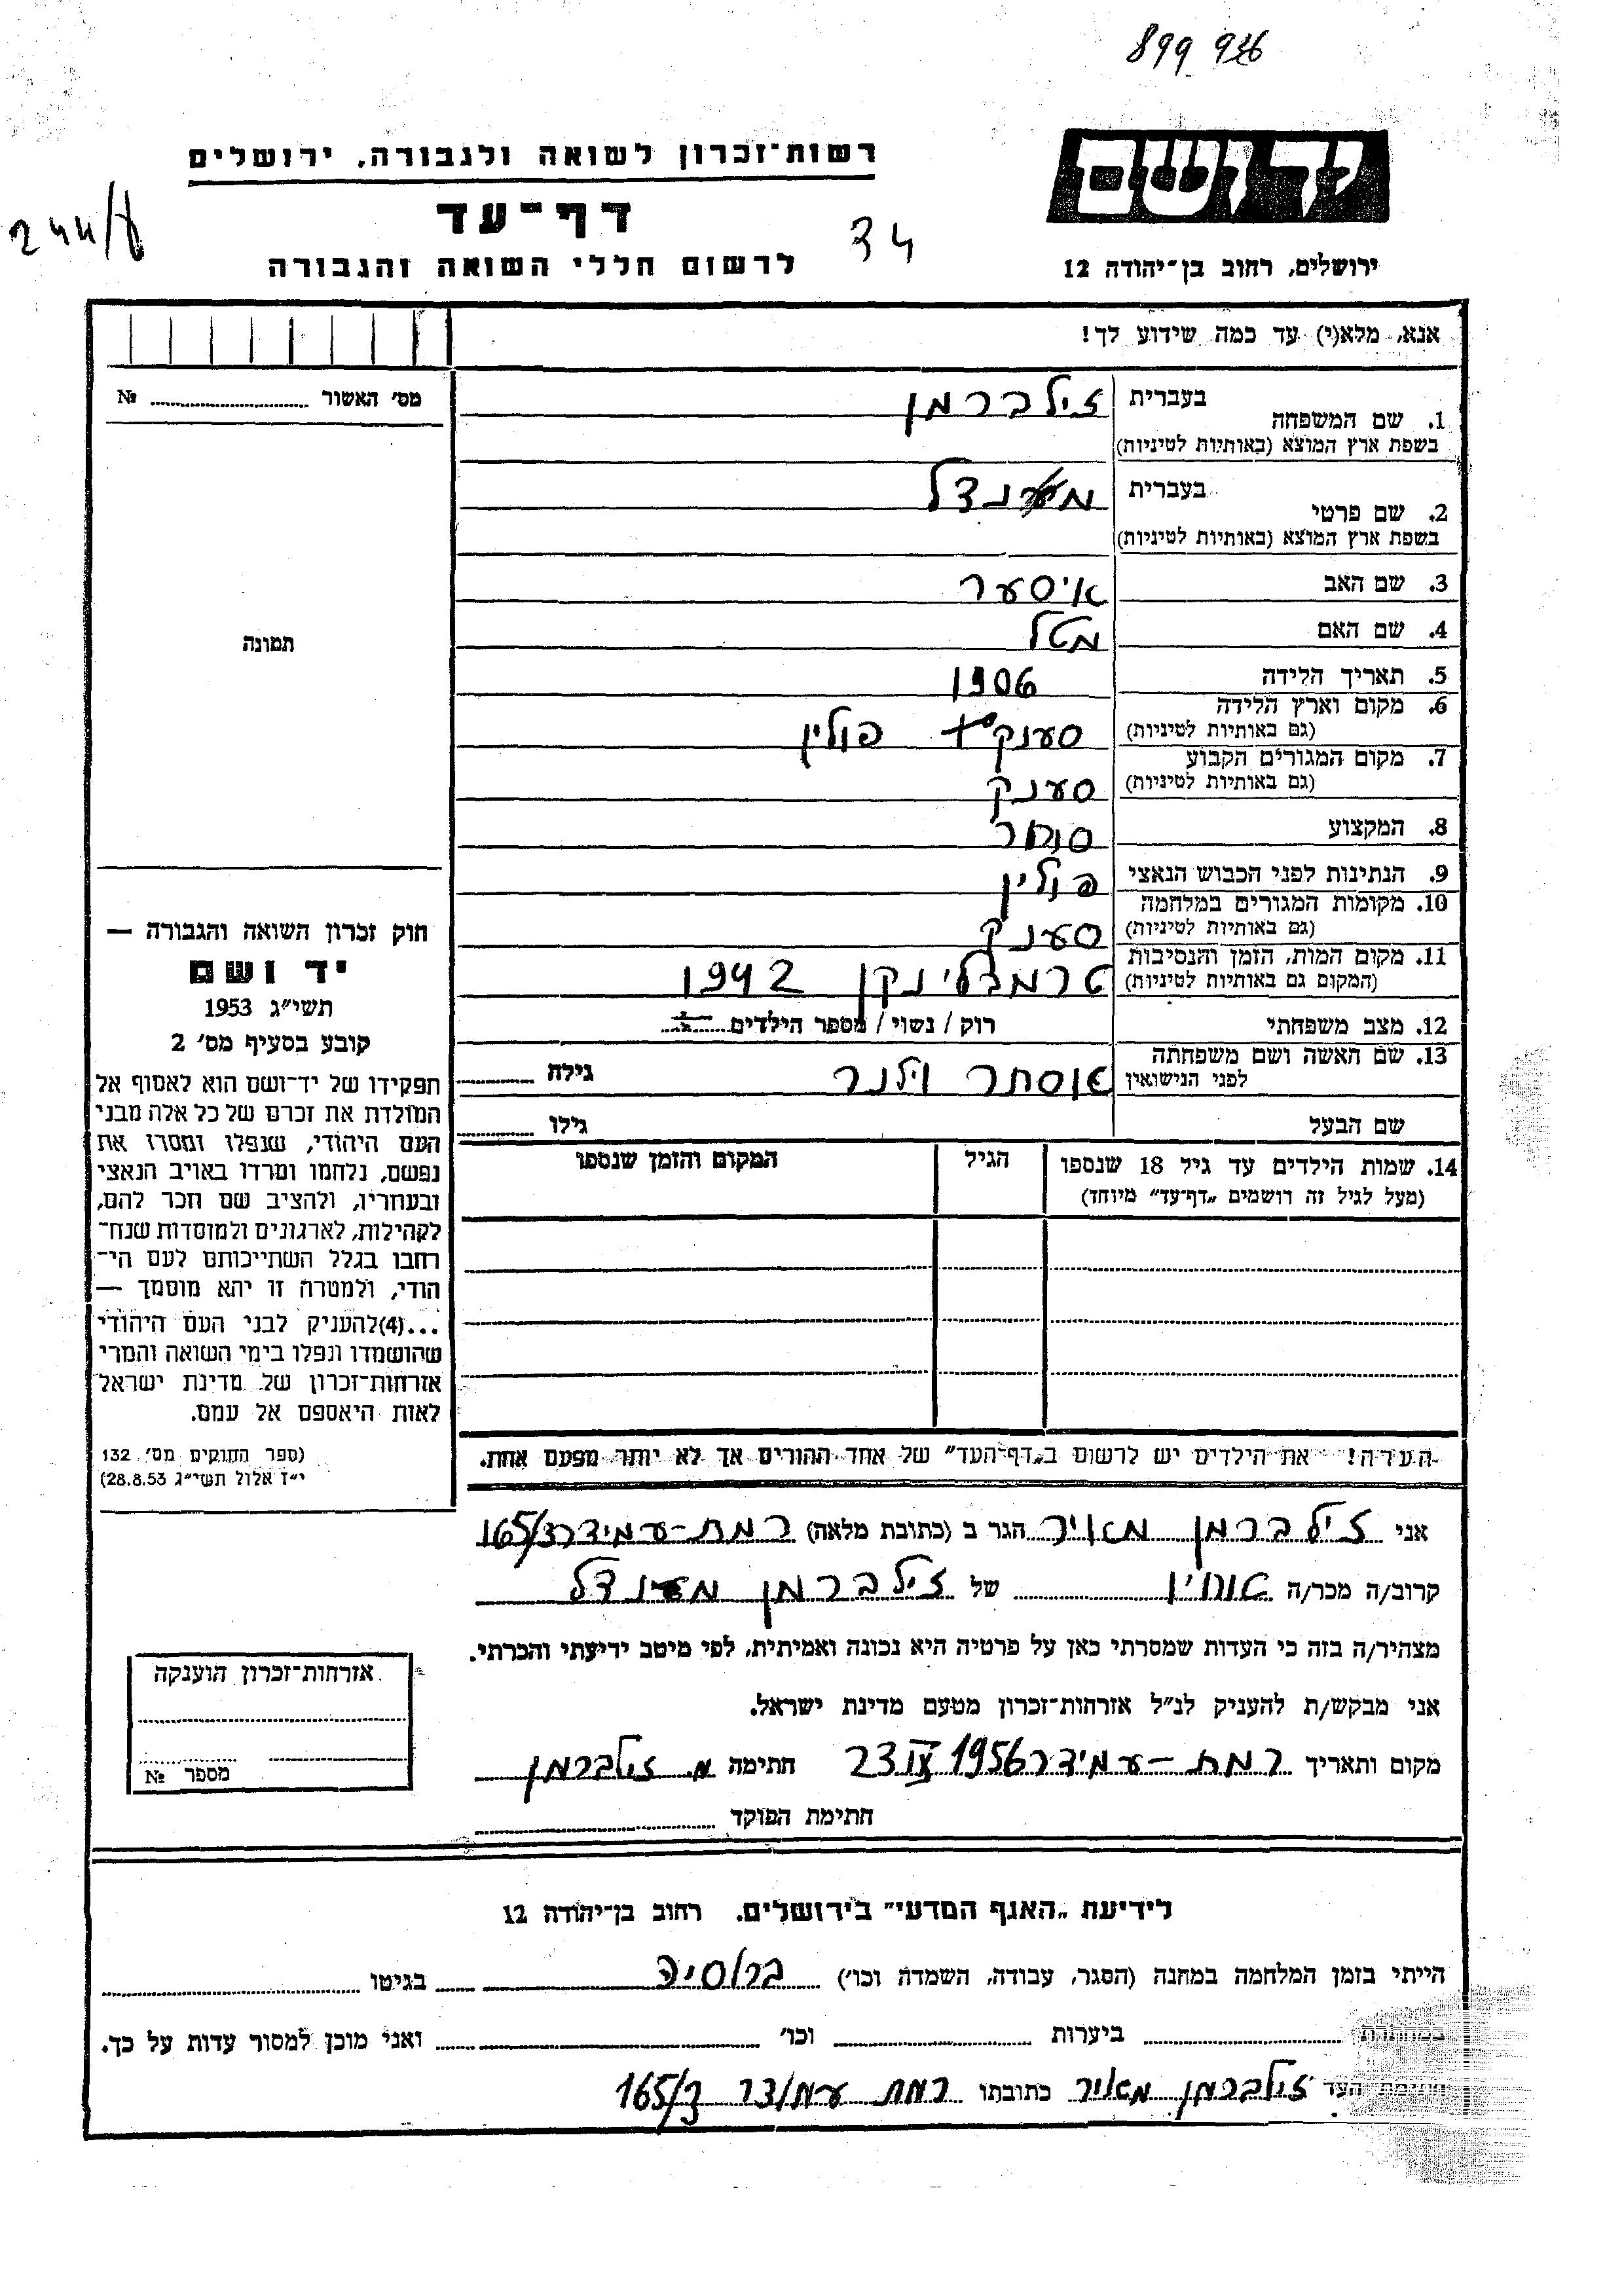 899 926
רשות־זכרון לשואה ולגבורה, ירושלים
יד ושם
דף־עד
34
244/
לרשום חללי השואה והגבורה
ירושלים, רחוב בן־יהודה 12
אנא, מלא(י) עד כמה שידוע לך!
מס׳ האשור № ........
1. שם המשפחה בעברית זילברמן
בשפת ארץ המוצא (באותיות לטיניות)
2. שם פרטי בעברית מענדל
בשפת ארץ המוצא (באותיות לטיניות)
3. שם האב איסער
4. שם האם מטל
5. תאריך הלידה 1906
6. מקום וארץ הלידה פולין
(גם באותיות לטיניות)
7. מקום המגורים הקבוע סענק
(גם באותיות לטיניות)
8. המקצוע סוחר
9. הנתינות לפני הכבוש הנאצי פולין
10. מקומות המגורים במלחמה סענק
(גם באותיות לטיניות)
11. מקום המות, הזמן והנסיבות טרמבלינקן 1942
(המקום גם באותיות לטיניות)
12. מצב משפחתי רוק / נשוי / מספר הילדים
13. שם האשה ושם משפחתה אסתר וילנר גילה ........
לפני הנישואין
שם הבעל גילו ........
14. שמות הילדים עד גיל 18 שנספו הגיל המקום והזמן שנספו
(מעל לגיל זה רושמים „דף־עד״ מיוחד)
הערה! את הילדים יש לרשום ב„דף־העד״ של אחד ההורים אך לא יותר מפעם אחת.
תמונה
חוק זכרון השואה והגבורה —
יד ושם
תשי״ג 1953
קובע בסעיף מס׳ 2
תפקידו של יד־ושם הוא לאסוף אל
המולדת את זכרם של כל אלה מבני
העם היהודי, שנפלו ומסרו את
נפשם, נלחמו ומרדו באויב הנאצי
ובעוזריו, ולהציב שם וזכר להם,
לקהילות, לארגונים ולמוסדות שנח־
רבו בגלל השתייכותם לעם הי־
הודי, ולמטרה זו יהא מוסמך —
...(4)להעניק לבני העם היהודי
שהושמדו ונפלו בימי השואה והמרי
אזרחות־זכרון של מדינת ישראל
לאות היאספם אל עמם.
(ספר החוקים מס׳ 132
י״ז אלול תשי״ג 28.8.53)
אני זילברמן מאיר הגר ב (כתובת מלאה) רמת-עמידר 165/ג
קרוב/ה מכר/ה של זילברמן מענדל
מצהיר/ה בזה כי העדות שמסרתי כאן על פרטיה היא נכונה ואמיתית, לפי מיטב ידיעתי והכרתי.
אני מבקש/ת להעניק לנ״ל אזרחות־זכרון מטעם מדינת ישראל.
מקום ותאריך רמת-עמידר 23 IX 1956 חתימה מ. זילברמן
חתימת הפוקד ........
אזרחות־זכרון הוענקה
מספר №
לידיעת „האגף המדעי״ בירושלים, רחוב בן־יהודה 12
הייתי בזמן המלחמה במחנה (הסגר, עבודה, השמדה וכו׳) ברוסיה בגיטו ........
במחתרת ........ ביערות ........ וכו׳ ........ ואני מוכן למסור עדות על כך.
חתימת העד זילברמן מאיר כתובתו רמת עמידר ג/165